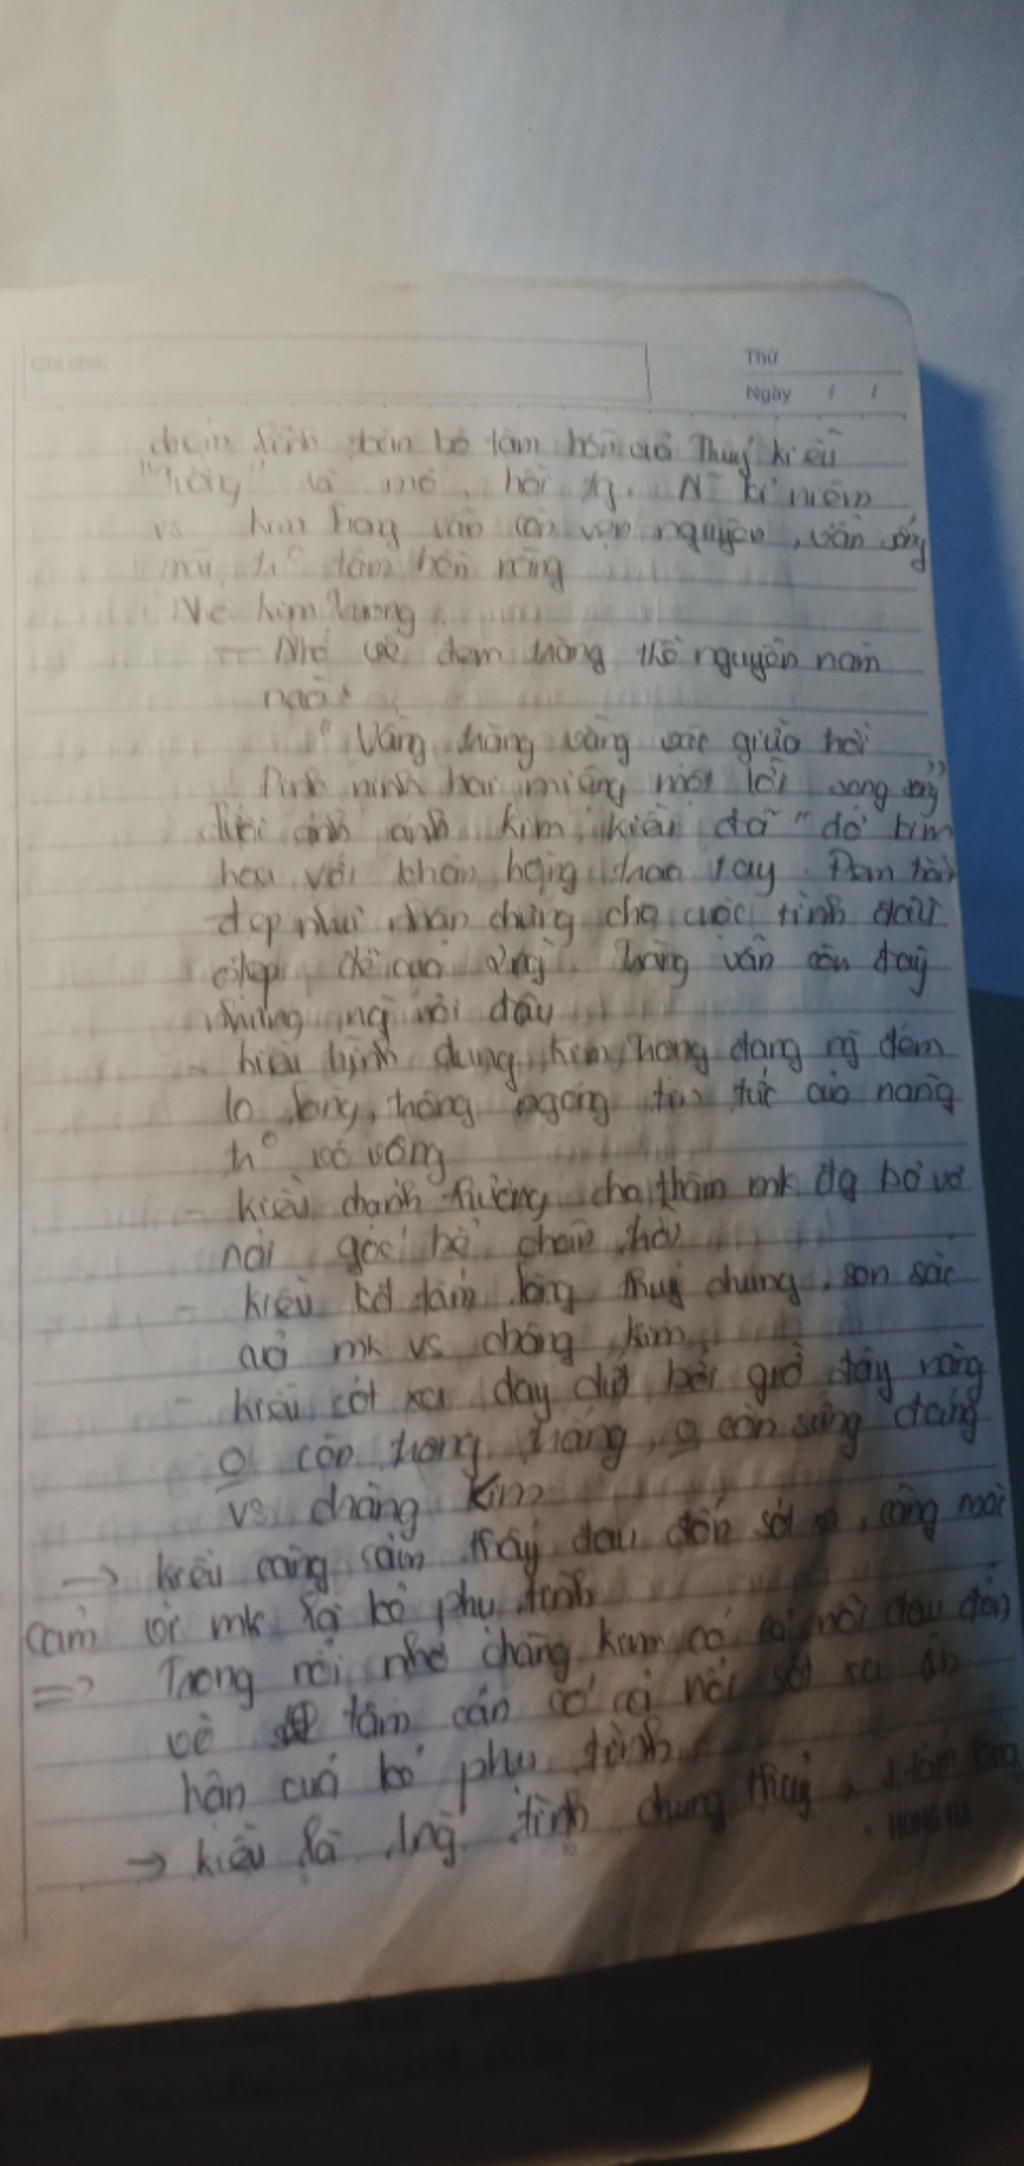 Ghi chú:
Thứ
Ngày / /
toàn bộ tâm hồn của Thuý kiều
"Tưởng" là mơ, hồi N~ kỉ niệm
vs kim trọng vẫn còn vẹn nguyên, vẫn sống
mãi tr° tâm hồn nàng
Nhớ kim trọng
- Nhớ về đêm trăng thề nguyền năm
nào:
" Vầng trăng vằng vặc giữa trời
Đinh ninh hai miệng một lời song song"
ánh kim, kiều đã "dở kim
hoa với khăn hồng trao tay.
đẹp như nhân chứng cho cuộc tình
đẹp, Trăng vẫn còn đấy
những ng` nơi đâu
- kiều hình dung, kim trọng đang ng` đêm
lo lắng, trông ngóng tin tức của nàng
tr° vô vọng
- kiều chạnh thương cho thân mk đg bơ vơ
nơi góc bể chân trời
- kiều tấm lòng thuỷ chung, son sắc
của mk vs chàng kim
- kiều xót xa day dứt bởi giờ đây nàng
o còn trong trắng, o còn xứng đáng
vs chàng Kim
-> kiều càng cảm thấy đau đớn xót xa, càng mặc
cảm vì mk là kẻ phụ tình
=> Trong nỗi nhớ chàng kim có cả nỗi đau đớn
về tâm cán có cả nỗi xót xa ân
hận của kẻ phụ tình
-> kiều là ng` tình chung thuỷ,
HONG HA